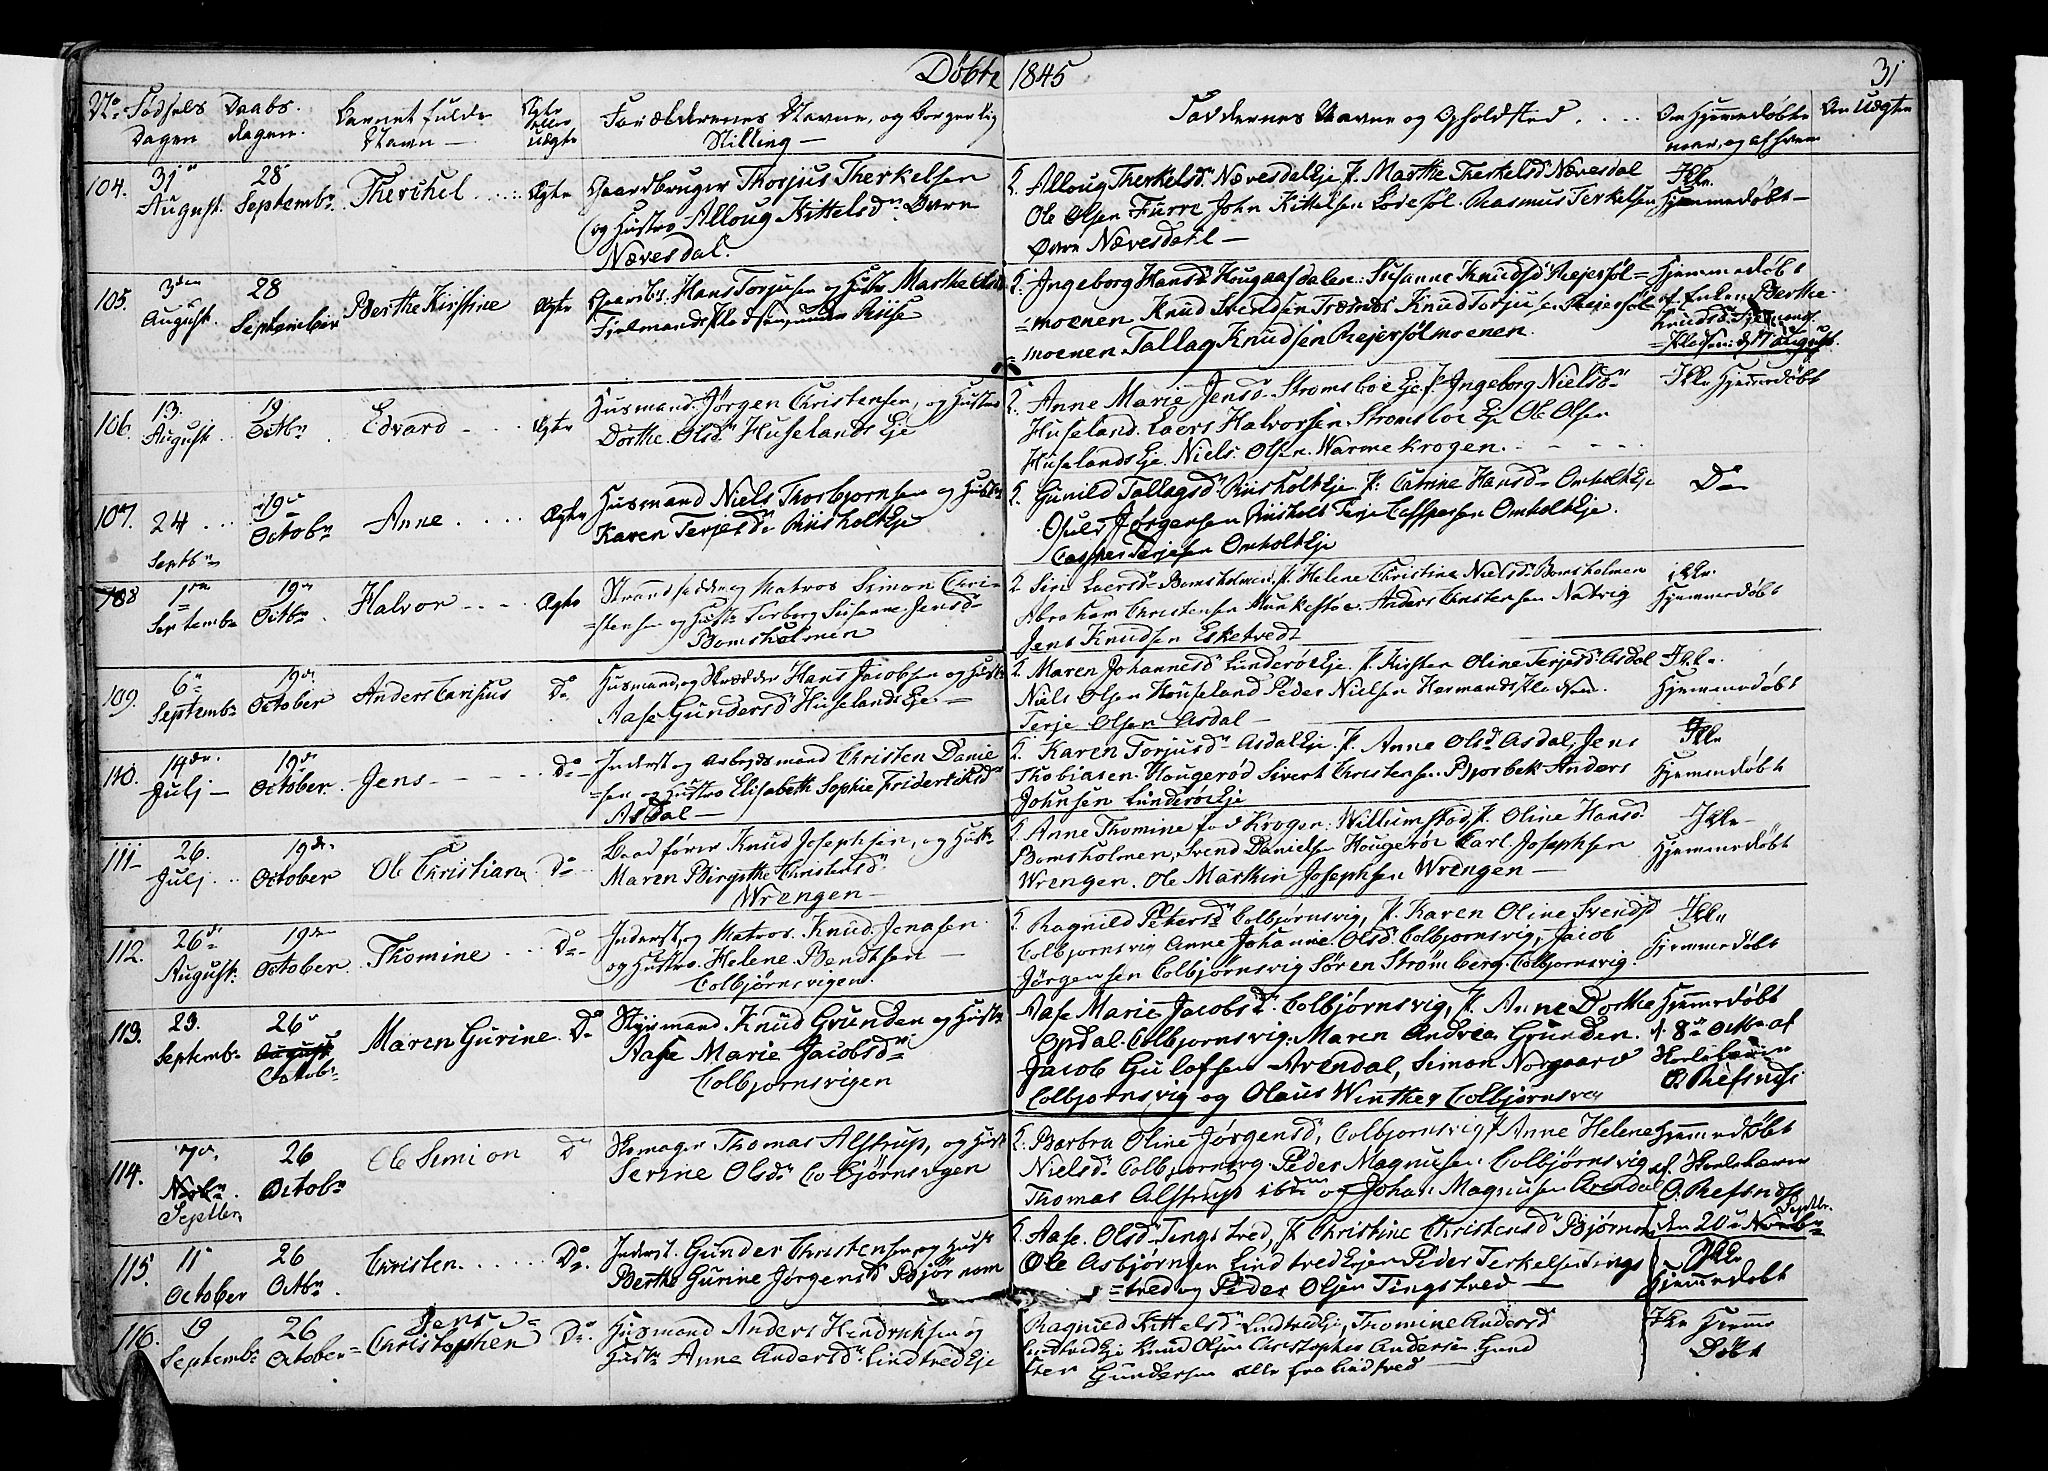 Döbte 1845
31
No Fødsels Dagen
Daabs dagen
Barnet fulde Navn —
Ægte eller Uægte
Forældrenes Navne, og borgerlig Stilling —
Faddernes Navne og Opholdsted . . . .
Om Hjemmedøbte naar, og af hvem
Om Uægte
104. 31 August. 28 Septembr. Therchel Ægte
Gaardbruger Thorjus Therkelsen
og Hustro Alloug Kittelsdr. Øvre
Nævesdal.
Alloug Therkelsdr Nævesdal Eje P. Marthe Therkelsdr Nævesdal
Ole Olsen Furre John Kittelsen Lødesøl. Rasmus Terkelsen
Øvre Nævesdahl —
Ikke
Hjemmedøbt —
105. 3den August. 28 September Berthe Kirstine Ægte
Hans Torjusen og Hustr Marthe
Fjelmandspladsen, under Riise
Ingeborg Hansdr Hougaasdalen. Susanne Knudsdr Rejersøl=
=moenen Knud Svendsen Træmoe Knud Torjusen Rejersøl
=moenen Tallag Knudsen Rejersølmoenen.
Hjemmedøbt
af Enken Berthe
Knudsdr.
=Pladsen: d. 17 August.
106. 13. August. 19. Octbr Edvard Ægte
Husmand. Jörgen Christensen, og Hustro
Dorthe Olsdr Huselands Eje
Anne Marie Jensdr. Strømsboe Eje, P. Ingeborg Nielsdr
Huseland. Laers Halvorsen Strømsboe Eje Ole Olsen
Huselands Eje. Niels Olsen. Warmekrogen.
Ikke Hjemmedøbt
107. 24 Septbr 19 Octobr Anne Ægte
Husmand Niels Thorbjørnsen og Hustr
Karen Terjesdr Riisholt Eje
Gunild Tallagsdr Riisholt Eje. P. Catrine Hansdr Omholt Eje
Jørgensen Riisholt Terje Casspersen Omholt Eje.
Casper Terjesen Omholt Eje
Do
108 1 Septembr 19 Octbr Halvor Ægte
Strandsidder og Matros Simon Chri=
=stensen og Hustr Torborg Susanne Jensdr
Bomsholmen
Siri Laersdr Bomsholmen. P. Helene Christina Nielsdr. Bomsholmen
Abraham Christensen Munkestøe. Anders Christensen Natvig
Jens Knudsen Esketvedt
Ikke Hjemmedøbt
109. 6 Septembr 19 October Anders Carisius Do
Husmand, og Skrædder Hans Jacobsen og Hustr
Aase Gundersdr Huselands Eje —
Maren Johannesdr Lunderøe Eje. P. Kirsten Oline Terjesdr Asdal
Niels Olsen Houseland Peder Nielsen Hermands Pladsen.
Terje Olsen Asdal —
Ikke Hjemmedøbt
110. 14de Julj — 19 October. Jens Do
Inderst og Arbejdsmand Christen Danie
=sen og Hustro Elisabeth Sophie Friderichsdr
Asdal —
Karen Torjusdr Asdal Eje. P. Anne Olsdr Asdal, Jens
Thobiasen Hougerød Sivert Christensen Bjorbek Anders
Johnsen Lunderøe Eje
Ikke Hjemmedøbt
111 26. Julj 19de October Ole Christian Do
Baadfører Knud Josephsen, og Hustr
Maren Birgithe Christensdr
Wrengen —
Anne Thomine fød Kroger. Willumstad P. Oline Hansdr
Bomsholmen, Svend Danielsen Hougerøe Carl Josephsen
Wrengen. Ole Martin Josephsen Wrengen —
Ikke Hjemmedøbt
112. 26 August. 19 October. Thomine Do
Inderst, og Matros. Knud Jonasen
og Hustro. Helene Bendtsen —
Colbjörnsvigen.
Ragnild Petersdr Colbjørnsvig, P. Karen Oline Svendsd
Colbjørnsvig Anne Johanne Olsdr Colbjørnsvig, Jacob
Jörgensen Colbjørnsvig Sören Strömberg. Colbjørnsvig.
Ikke Hjemmedøbt
113. 23. Septembr 26 August Octobr Maren Gurine Do
Styrmand. Knud Grunden og Hustr
Aase Marie Jacobsdr
Colbjornsvigen
Aase Marie Jacobsdr. Colbjørnsvig, P. Anne Dorthe
Opdal. Colbjornsvig. Maren Andrea Grunden.
Jacob Gulofsen Arendal, Simon Norgaard
Colbjornsvig og Olaus Winther Colbjørnsvig
Hjemmedøbt
d. 8 Octbr af
O. Refsnes
114. 7 Novbr. Septbr 26 Octobr Ole Simion Do
Skomager Thomas Alstrup, og Hustr
Serine Olsdr Colbjørnsvigen
Barbra Oline Jørgensdr, Colbjornsvig P. Anne Helene
Nielsdr Colbjornsvig. Peder Magnusen Colbjørnsvig
Thomas Alstrup ibm og Johan Magnusen Arendal
Hjemmedøbt
af
O. Refsnes
den 20 Novbr Septbr.
115. 11 October 26 Octbr. Christen Do
Inderst. Gunder Christensen og Hustr
Berthe Gurine Jørgensdr Bjørnom
Aase. Olsdr Tingstved, P. Christine Christensdr Bjørnom
Ole Asbjørnsen Lindtved Ejen Peder Terkelsen Tings
=tved og Peder Olsen Tingstved —
Ikke Hjemmedøbt
116. 19 Septembr 26 October Jens Christopher Do.
Husmand Anders Hendrichsen og
Hustr Anne Andersdr Lindtved Eje
Ragnild Kittelsdr Lindtved Eje, Thomine Andersd
Lindtved Eje Knud Olsen Christopher Andersen
Gundersen alle fra Lindtved
Ikke Hjemme Døbt